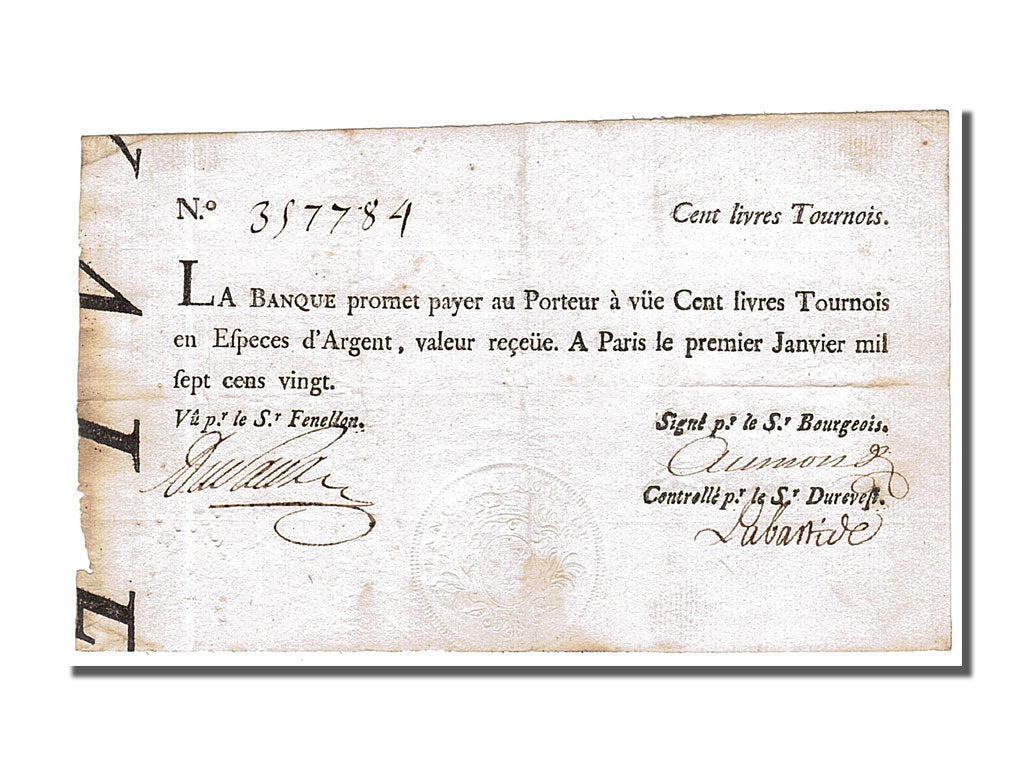 N.º 357784 Cent livres Tournois.
LA BANQUE promet payer au Porteur à vüe Cent livres Tournois
en Eſpeces d'Argent, valeur reçeüe. A Paris le premier Janvier mil
ſept cens vingt.
Vû p.r le S.r Fenellon.
Signé p.r le S.r Bourgeois.
Controllé p.r le S.r Dureveſt.
Labastide